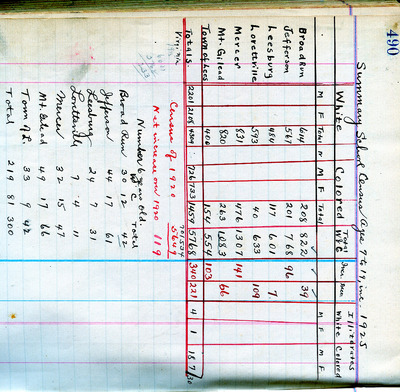 490
Summary School Census Age 7 to 19 inc. 1925
White Colored Total W&C Inc. Dec. Illiterates White Colored
M F Total M F Total M F M F
Broad Run 614 208 822 39
Jefferson 567 201 768 96
Leesburg 484 117 601 7
Lovettsville 593 40 633 109
Mercer 831 476 1307 141
Mt. Gilead 820 263 1083 66
Town of Lees 400 154 554 103
Totals 2201 2108 4309 726 733 1459 5768 340 221 4 1 18 7 30
Virginia
Census of 1920 5649
Net increase over 1920 119
Number 6 years old.
W C Total
Broad Run 30 12 42
Jefferson 44 17 61
Leesburg 24 7 31
Lovettsville 7 4 11
Mercer 32 15 47
Mt. Gilead 49 17 66
Town of L. 33 9 42
Total 219 81 300